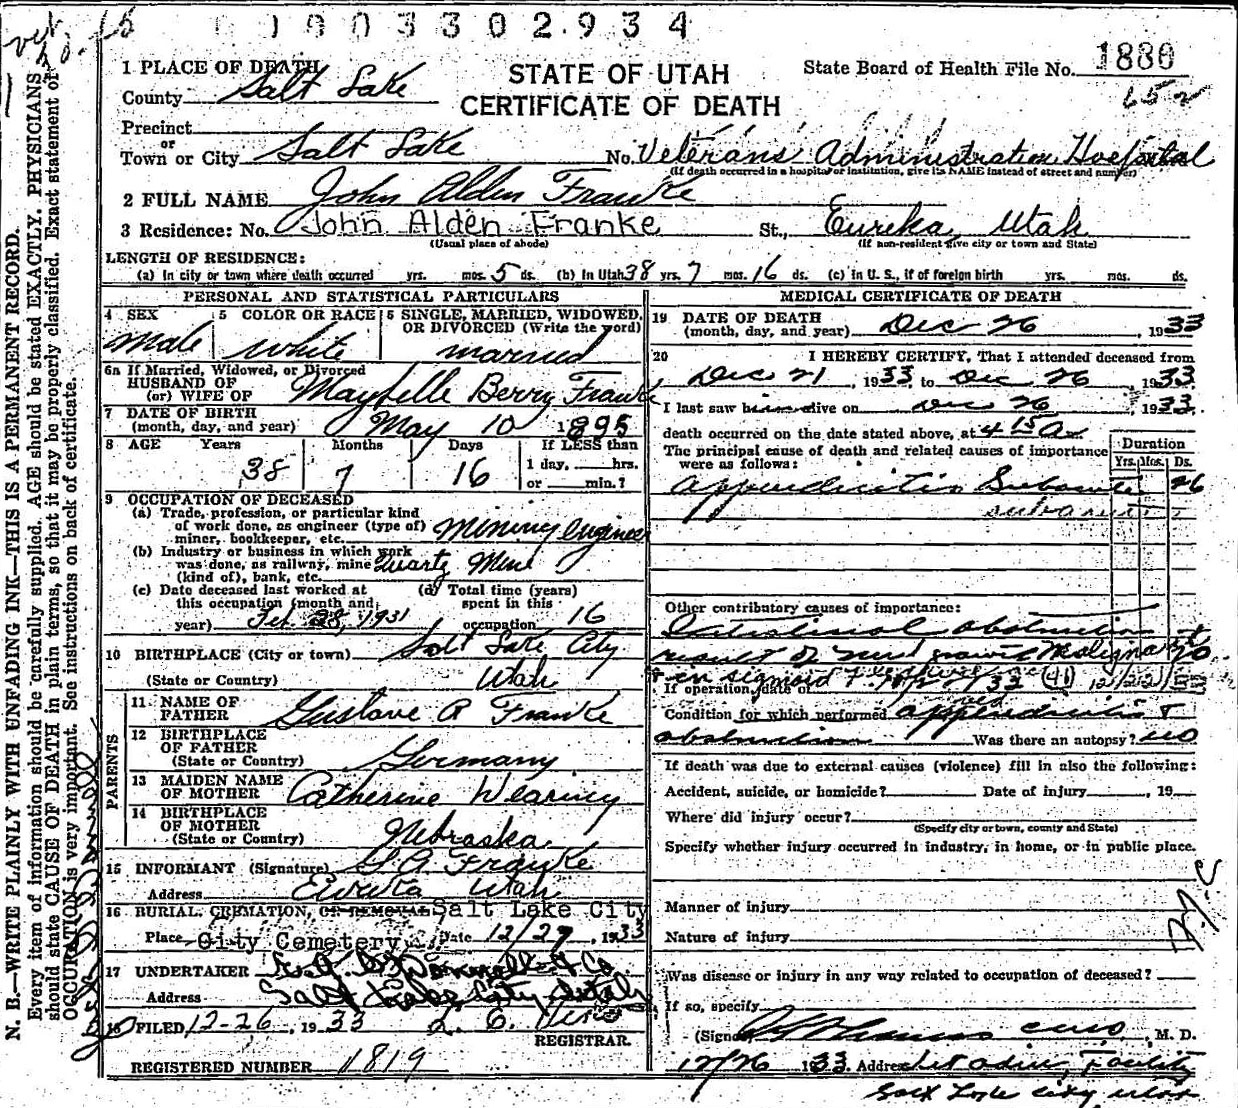 1903302934
vet
STATE OF UTAH
CERTIFICATE OF DEATH
State Board of Health File No. 1880
652
1 PLACE OF DEATH
County Salt Lake
Precinct
or
Town or City Salt Lake No. Veterans' Administration Hospital
(If death occurred in a hospital or institution, give its NAME instead of street and number)
2 FULL NAME John Alden Franke
3 Residence: No. John Alden Franke St., Eureka, Utah
(Usual place of abode) (If non-resident give city or town and State)
LENGTH OF RESIDENCE:
(a) In city or town where death occurred yrs. mos. 5 ds. (b) In Utah 38 yrs. 7 mos. 16 ds. (c) in U. S., if of foreign birth yrs. mos. ds.
N. B.—WRITE PLAINLY WITH UNFADING INK—THIS IS A PERMANENT RECORD.
Every item of information should be carefully supplied. AGE should be stated EXACTLY. PHYSICIANS
should state CAUSE OF DEATH in plain terms, so that it may be properly classified. Exact statement of
OCCUPATION is very important. See instructions on back of certificate.
PERSONAL AND STATISTICAL PARTICULARS
4 SEX Male
5 COLOR OR RACE white
6 SINGLE, MARRIED, WIDOWED,
OR DIVORCED (Write the word) married
6a If Married, Widowed, or Divorced
HUSBAND OF
(or) WIFE OF Maybelle Berry Franke
7 DATE OF BIRTH
(month, day, and year) May 10 1895
8 AGE Years Months Days If LESS than
38 7 16 1 day, hrs.
or min.?
9 OCCUPATION OF DECEASED
(a) Trade, profession, or particular kind
of work done, as engineer (type of)
miner, bookkeeper, etc. Mining Engineer
(b) Industry or business in which work
was done, as railway, mine Quartz Mine
(kind of), bank, etc.
(c) Date deceased last worked at
this occupation (month and
year) Feb 28, 1931
(d) Total time (years)
spent in this
occupation 16
10 BIRTHPLACE (City or town) Salt Lake City
(State or Country) Utah
PARENTS
11 NAME OF
FATHER Gustave A Franke
12 BIRTHPLACE
OF FATHER
(State or Country) Germany
13 MAIDEN NAME
OF MOTHER Catherine Wearing
14 BIRTHPLACE
OF MOTHER
(State or Country) Nebraska
15 INFORMANT (Signature) G. A. Franke
Address Eureka Utah
16 BURIAL, CREMATION, OR REMOVAL Salt Lake City
Place City Cemetery Date 12/27, 1933
17 UNDERTAKER
Address Salt Lake City Utah
18 FILED 12-26, 1933
REGISTRAR.
REGISTERED NUMBER 1819
MEDICAL CERTIFICATE OF DEATH
19 DATE OF DEATH
(month, day, and year) Dec 26, 1933
20 I HEREBY CERTIFY, That I attended deceased from
Dec 21, 1933 to Dec 26, 1933
I last saw him alive on Dec 26, 1933
death occurred on the date stated above, at 4 15 a
The principal cause of death and related causes of importance
were as follows:
Duration
Yrs. Mos. Ds.
Appendicitis Subacute 26
subacute
Other contributory causes of importance:
Intestinal obstruction
result of new growth Malignant
in sigmoid
If operation, date of 33 (41) 12/22/
Condition for which performed appendicitis &
obstruction Was there an autopsy? no
If death was due to external causes (violence) fill in also the following:
Accident, suicide, or homicide? Date of injury , 19
Where did injury occur?
(Specify city or town, county and State)
Specify whether injury occurred in industry, in home, or in public place.
Manner of injury
Nature of injury
Was disease or injury in any way related to occupation of deceased?
If so, specify
(Signed) M. D.
12/26 1933 Address Vet Admin. Facility
Salt Lake City Utah